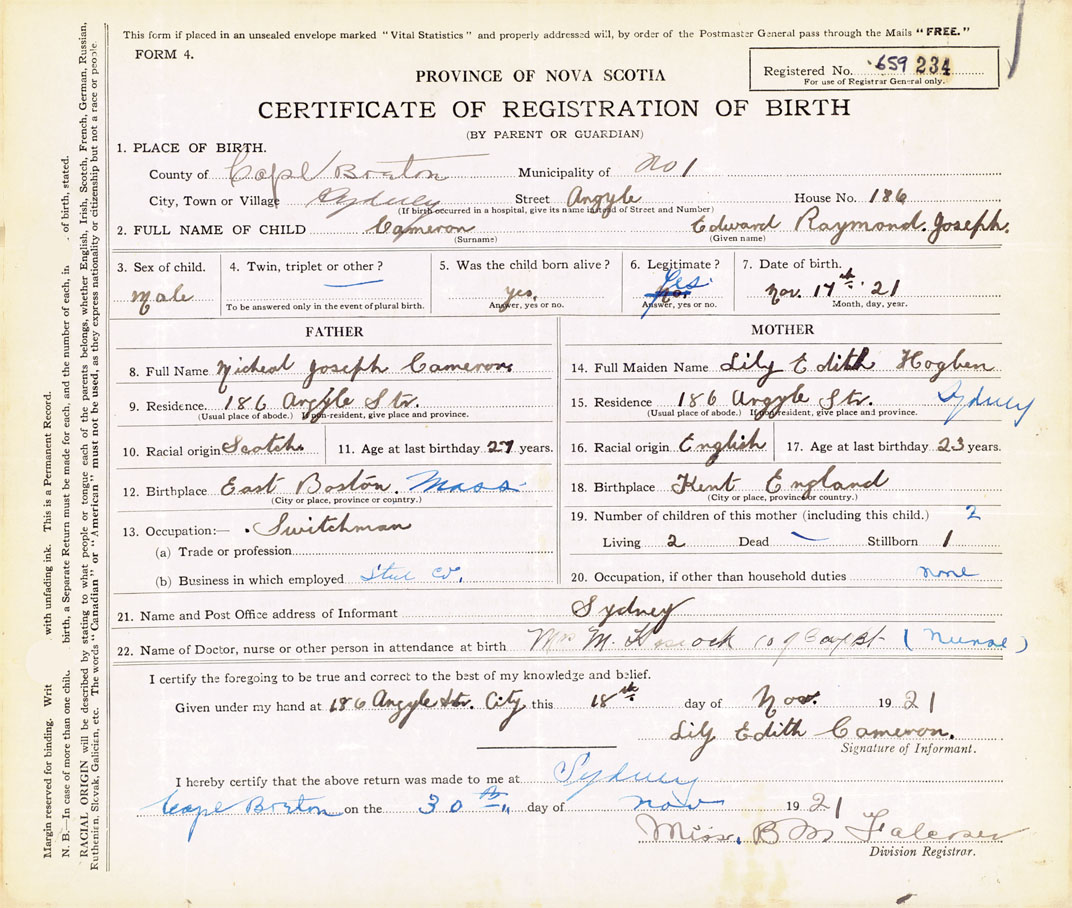 This form if placed in an unsealed envelope marked "Vital Statistics" and properly addressed will, by order of the Postmaster General pass through the Mails "FREE."
FORM 4.
Registered No. 659 234
For use of Registrar General only.
PROVINCE OF NOVA SCOTIA
CERTIFICATE OF REGISTRATION OF BIRTH
(BY PARENT OR GUARDIAN)
1. PLACE OF BIRTH.
County of Cape Breton Municipality of No 1
City, Town or Village Sydney Street Argyle House No. 186
(If birth occurred in a hospital, give its name instead of Street and Number)
2. FULL NAME OF CHILD Cameron Edward Raymond. Joseph.
(Surname) (Given name)
3. Sex of child. 4. Twin, triplet or other? 5. Was the child born alive? 6. Legitimate? 7. Date of birth.
Male yes, Yes Nov. 17th '21
To be answered only in the event of plural birth. Answer, yes or no. Answer, yes or no. Month, day, year.
FATHER
8. Full Name Micheal Joseph Cameron
9. Residence. 186 Argyle Str.
(Usual place of abode.) If non-resident, give place and province.
10. Racial origin Scotch. 11. Age at last birthday 27 years.
12. Birthplace East Boston. Mass
(City or place, province or country.)
13. Occupation:— Switchman
(a) Trade or profession
(b) Business in which employed Steel Co.
MOTHER
14. Full Maiden Name Lily Edith Hogben
15. Residence 186 Argyle Str. Sydney
(Usual place of abode.) If non-resident, give place and province.
16. Racial origin English 17. Age at last birthday 23 years.
18. Birthplace Kent England
(City or place, province or country.)
19. Number of children of this mother (including this child.) 2
Living 2 Dead Stillborn 1
20. Occupation, if other than household duties none
21. Name and Post Office address of Informant Sydney
22. Name of Doctor, nurse or other person in attendance at birth Mrs M. (Nurse)
I certify the foregoing to be true and correct to the best of my knowledge and belief.
Given under my hand at 186 Argyle Str. City this 18th day of Nov. 1921
Lily Edith Cameron.
Signature of Informant.
I hereby certify that the above return was made to me at Sydney
Cape Breton on the 30th day of Nov 1921
Miss. B M
Division Registrar.
Margin reserved for binding. Writ with unfading ink. This is a Permanent Record.
N. B.—In case of more than one chil birth, a Separate Return must be made for each, and the number of each, in of birth, stated.
RACIAL ORIGIN will be described by stating to what people or tongue each of the parents belongs, whether English, Irish, Scotch, French, German, Russian,
Ruthenien, Slovak, Galician, etc. The words "Canadian" or "American" must not be used, as they express nationality or citizenship but not a race or people.